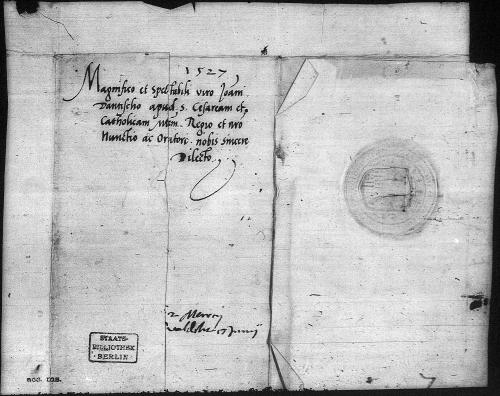 1527
Magnifico et spectabili viro Joan.
Dantischo apud s. Cesaream et
Catholicam mtem. Regio et nro
Nunctio ac Oratori. nobis sincere
Dilecto.
17 Junij
STAATS-
BIBLIOTHEK
BERLIN
acc. 108.